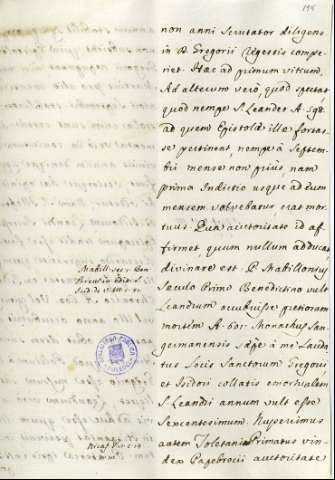 195
non anni Scrutator diligens
in D. Gregorii Regestis compe
riet. Haec ad primum vitium.
Ad alterum verò, quod spectat
quod nempe S. Leander A. 598
ad quem Epistolae illae fortas
se pertinent, nempe à Septem
bri mense non priùs, nam
prima Indictio usque ad eum
mensem volvebatur, erat mor
tuus. Qua auctoritate id af
firmet quum nullum adducat,
divinare est. P. Mabillonius
Seculo Primo Benedictino vult
Leandrum occubuisse praetoriam
mortem A. 601. Monachus San
germanensis saepe à me lauda
tus Sociis Sanctorum Gregorii,
et Isidori collatis emortualem
S. Leandri annum vult esse
Sexcentesimum. Nuperrimus
autem Toletani Primatus vin
dex Papebrocii auctoritate
Mabill. sec. 1 Ben
BIBLIOTECA PUBLICA
TOLEDO